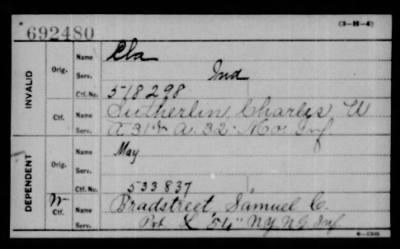 692480
(3-H-4)
INVALID
Orig.
Name
Serv.
Ctf. No.
Ind
518298
Ctf.
Name
Serv.
Sutherlin, Charles W
A 31 & A. 32 Mo. Inf
DEPENDENT
Orig.
Name May
Serv.
Ctf. No. 533837
W
Ctf.
Name Bradstreet, Samuel C.
Serv. Pvt. L "54" N.Y. N.G. Inf